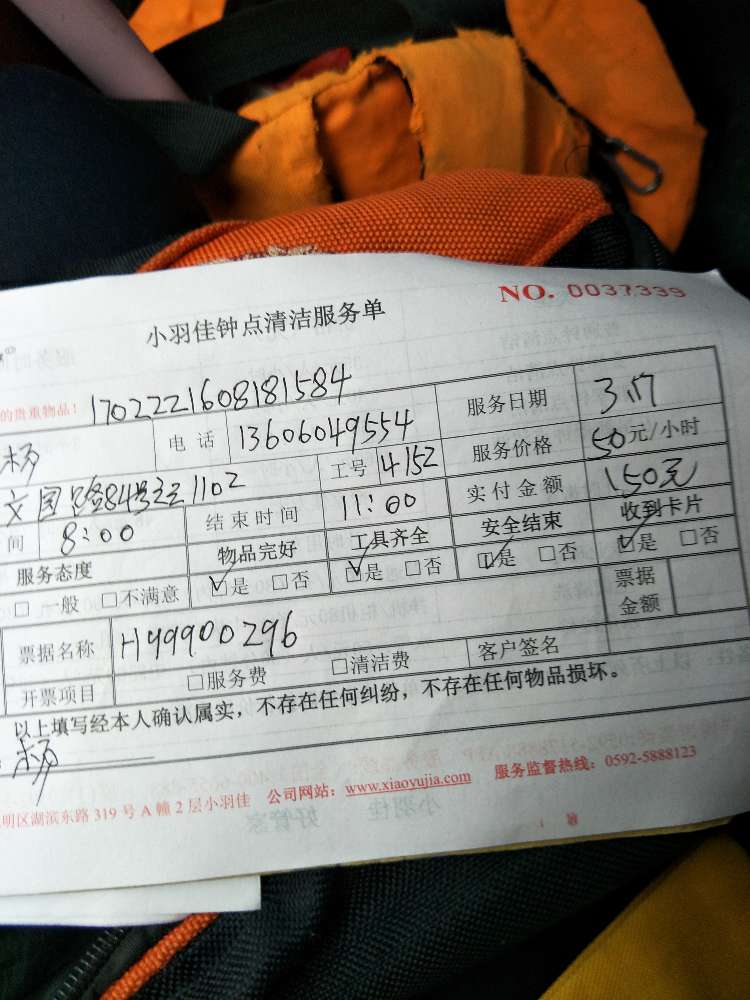 NO. 0037339
小羽佳钟点清洁服务单
的贵重物品！ 1702221608181584
杨 电话 13606049554 服务日期 3.17
文园路84号之 1102 工号 4152 服务价格 50元/小时
间 8:00 结束时间 11:00 实付金额 150元
服务态度 物品完好 工具齐全 安全结束 收到卡片
□一般 □不满意 ☑是 □否 ☑是 □否 ☑是 □否 ☑是 □否
票据名称 H99900296 票据金额
开票项目 □服务费 □清洁费 客户签名
以上填写经本人确认属实，不存在任何纠纷，不存在任何物品损坏。
杨
明区湖滨东路 319 号 A 幢 2 层小羽佳 公司网站：www.xiaoyujia.com 服务监督热线：0592-5888123